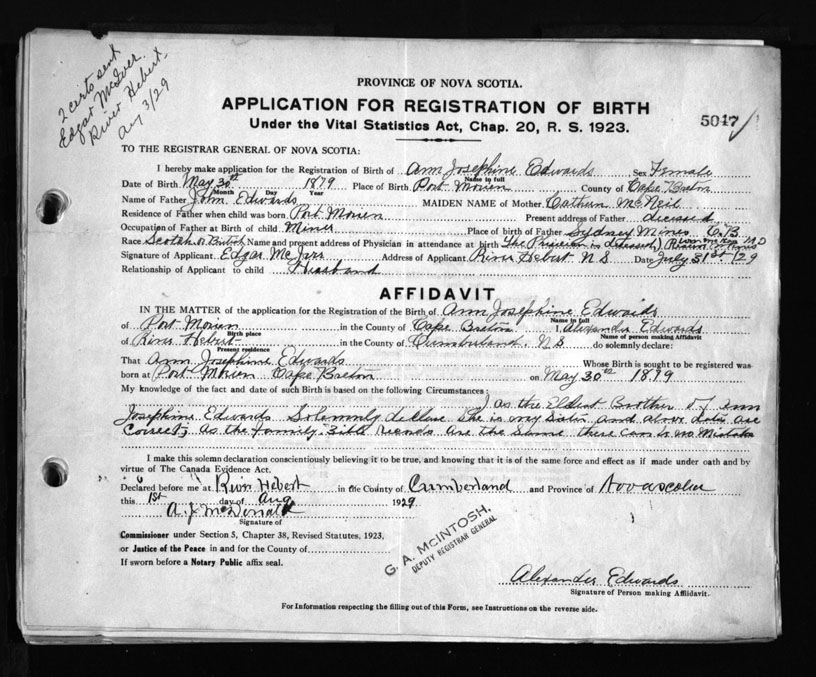 2 certs sent
Edgar McIver
River Hebert,
Aug 3/29
PROVINCE OF NOVA SCOTIA.
APPLICATION FOR REGISTRATION OF BIRTH
Under the Vital Statistics Act, Chap. 20, R. S. 1923.
5047
TO THE REGISTRAR GENERAL OF NOVA SCOTIA:
I hereby make application for the Registration of Birth of Ann Josephine Edwards Sex Female
Name in full
Date of Birth May 30th 1879 Place of Birth Port Morien County of Cape Breton
Month Day Year
Name of Father John Edwards MAIDEN NAME of Mother McNeil
Residence of Father when child was born Port Morien Present address of Father deceased
Occupation of Father at Birth of child Miner Place of birth of Father Sydney Mines C.B.
Race Scotch or British Name and present address of Physician in attendance at birth The Physician is deceased)
Signature of Applicant Edgar McIver Address of Applicant River Hebert N S Date July 31st /29
Relationship of Applicant to child Husband
AFFIDAVIT
IN THE MATTER of the application for the Registration of the Birth of Ann Josephine Edwards
Name in full
of Port Morien in the County of Cape Breton I, Alexander Edwards
Birth place Name of person making Affidavit
of River Hebert in the County of Cumberland, N S do solemnly declare:
Present residence
That Ann Josephine Edwards Whose Birth is sought to be registered was
born at Port Morien Cape Breton on May 30th 1879
My knowledge of the fact and date of such Birth is based on the following Circumstances:
I as the Eldest Brother of Ann
Josephine Edwards Solemnly declare She is my Sister and above dates are
Correct, as the family Bible Records are the Same there can be no Mistake
I make this solemn declaration conscientiously believing it to be true, and knowing that it is of the same force and effect as if made under oath and by
virtue of The Canada Evidence Act.
Declared before me at River Hebert in the County of Cumberland and Province of Nova Scotia
this 1st day of Aug 1929
A. J. McDonald
Signature of
Commissioner under Section 5, Chapter 38, Revised Statutes, 1923,
or Justice of the Peace in and for the County of
If sworn before a Notary Public affix seal.
G. A. McINTOSH,
DEPUTY REGISTRAR GENERAL
Alexander Edwards
Signature of Person making Affidavit.
For Information respecting the filling out of this Form, see Instructions on the reverse side.